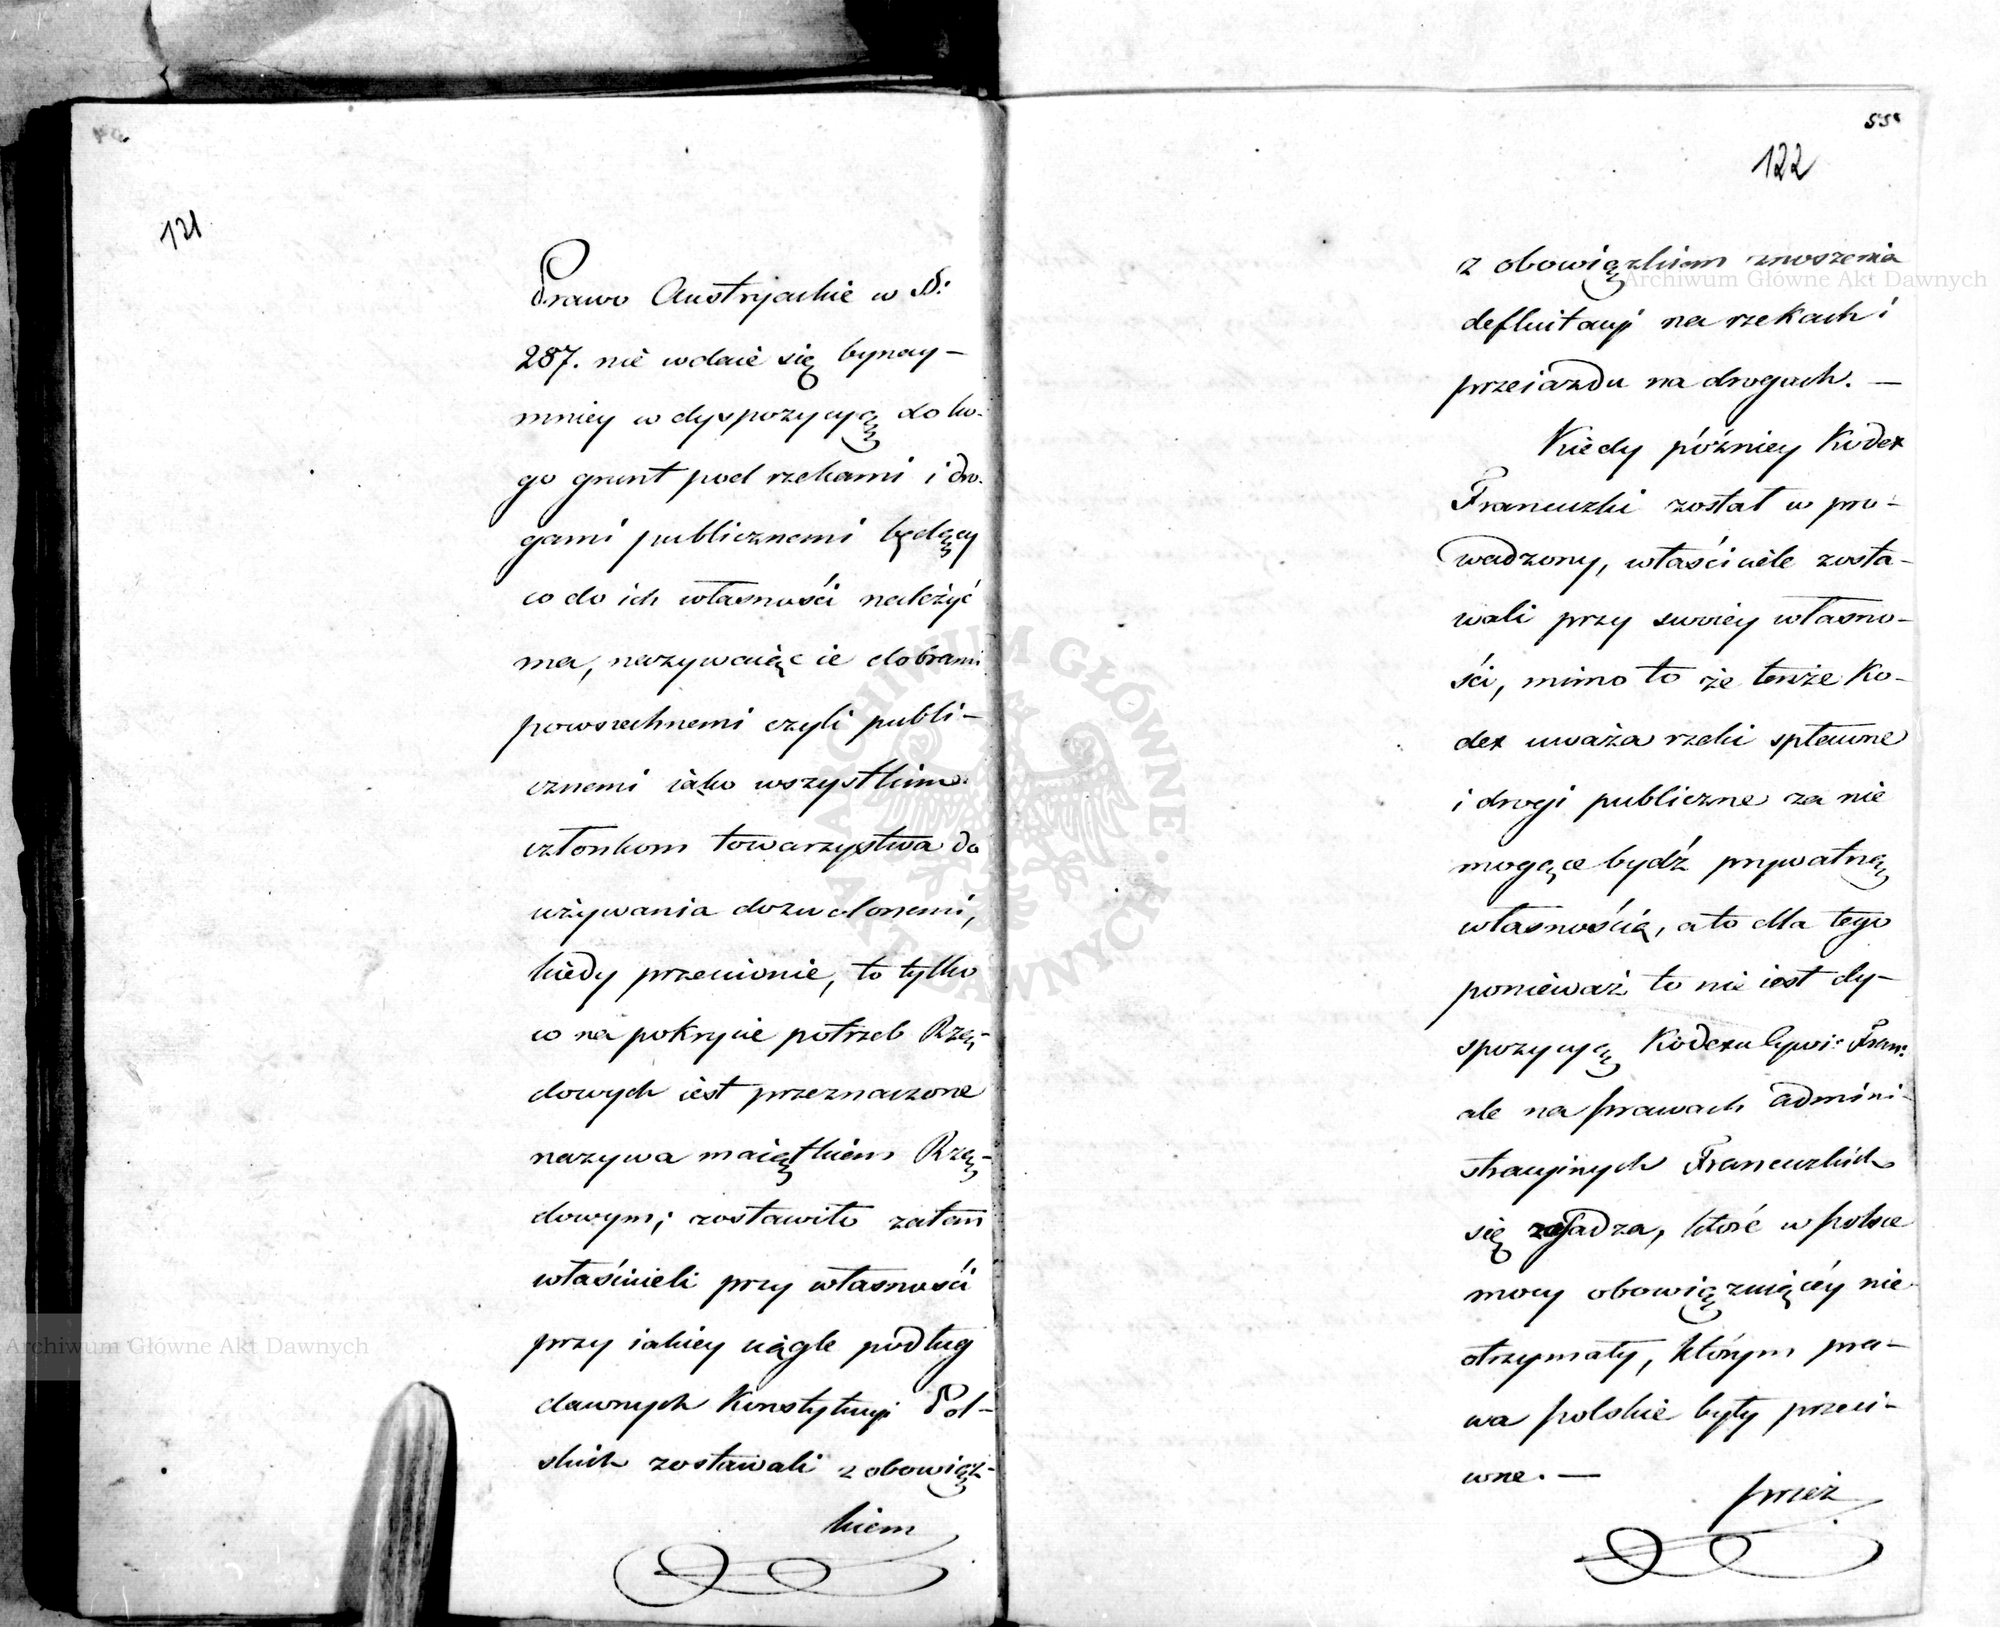 121
Prawo Austryackie w §:
287. nie wdaie się bynay-
mniey w dyspozycyą do ko-
go grunt pod rzekami i dro-
gami publicznemi będący
co do ich własności należyć
ma, nazywaiąc ie dobrami
powszechnemi czyli publi-
cznemi iako wszystkim
członkom towarzystwa do
używania dozwolonemi,
kiedy przeciwnie, to tylko
co na pokrycie potrzeb Rzą-
dowych iest przeznaczone
nazywa maiątkiem Rzą-
dowym; zostawiło zatem
właścicieli przy własności
przy iakiey ciągle podług
dawnych Konstytucyi Pol-
skich zostawali z obowiąz-
kiem
55
122
z obowiązkiem znoszenia
defluitacyi na rzekach i
przeiazdu na drogach. —
Kiedy późniey Kodex
Francuzki został w pro-
wadzony, właściciele zosta-
wali przy swoiey własno-
ści, mimo to że tenże Ko-
dex uważa rzeki spławne
i drogi publiczne za nie
mogące bydź prywatną
własnością, a to dla tego
ponieważ to nie iest dy-
spozycyą Kodexu Cywi: Fran:
ale na prawach admini-
stracyinych Francuzkich
się zgadza, które w Polsce
mocy obowiązuiącéy nie
otrzymały, którym pra-
wa polskie były przeci-
wne. —
przez
ARCHIWUM GŁÓWNE AKT DAWNYCH
Archiwum Główne Akt Dawnych
Archiwum Główne Akt Dawnych